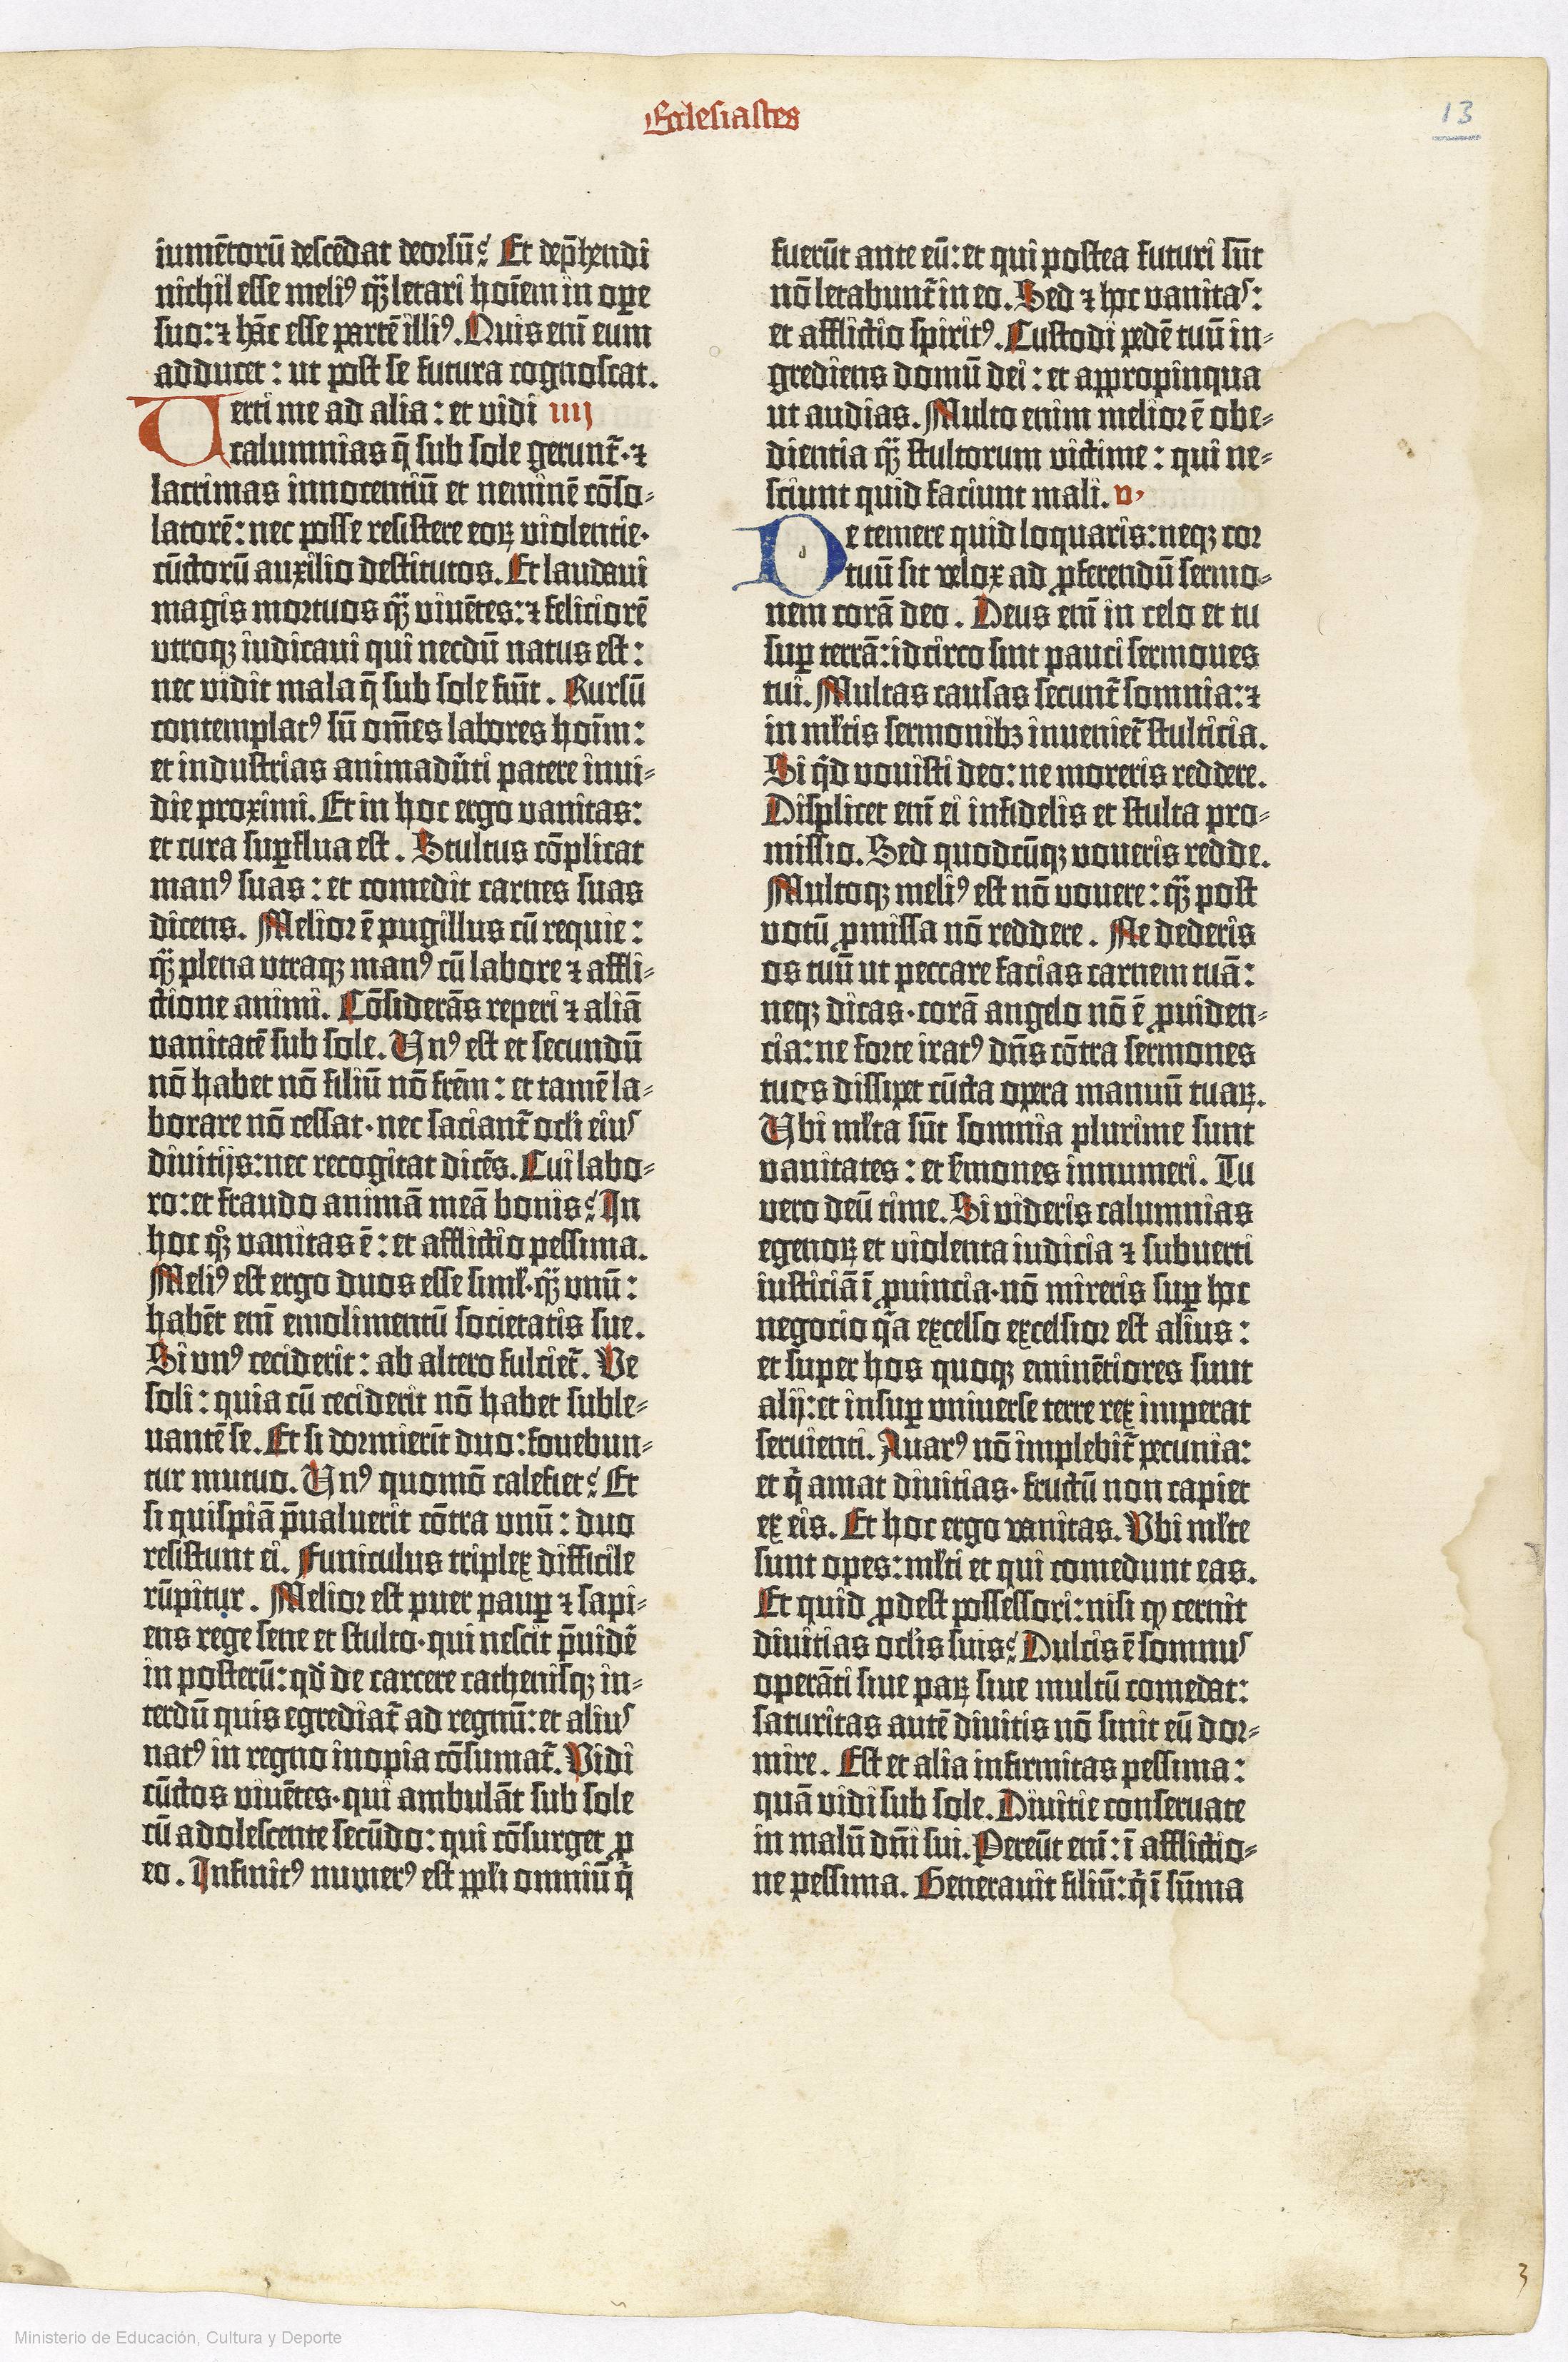 Ecclesiastes
13
iumētorū descēdat deorsū? Et dep̄hendi
nichil esse meliꝰ q̄ʒ letari hoīem in oꝑe
suo: ⁊ hāc esse partē illiꝰ. Quis enī eum
adducet : ut post se futura cognoscat.
Verti me ad alia : et vidi iiij
calumnias q̄ sub sole gerunt᷑· ⁊
lacrimas innocentiū et neminē cōso-
latorē: nec posse resistere eoꝝ violentie·
cūctorū auxilio destitutos. Et laudaui
magis mortuos q̄ʒ viuētes: ⁊ feliciorē
vtroqꝫ iudicaui qui necdū natus est :
nec vidit mala q̄ sub sole fiūt . Rursū
contemplatꝰ sū om̄es labores hoīm :
et industrias animadūti patere inui-
die proximi. Et in hoc ergo vanitas:
et cura suꝑflua est . Stultus cōplicat
manꝰ suas : et comedit carnes suas
dicens. Melior ē pugillus cū requie :
q̄ʒ plena vtraqꝫ manꝰ cū labore ⁊ affli-
ctione animi. Cōsiderās reperi ⁊ aliā
vanitatē sub sole. Vnꝰ est et secundū
nō habet nō filiū nō frēm : et tamē la-
borare nō cessat · nec saciant᷑ oclī eius
diuitijs: nec recogitat dicēs. Cui labo-
ro: et fraudo animā meā bonis? In
hoc qͦʒ vanitas ē : et afflictio pessima.
Meliꝰ est ergo duos esse simł · q̄ʒ vnū :
habēt enī emolimentū societatis sue.
Si vnꝰ ceciderit : ab altero fulciet᷑. Ve
soli : quia cū ceciderit nō habet suble-
uantē se. Et si dormierīt duo: fouebun-
tur mutuo. Vnꝰ quomō calefiet? Et
si quispiā p̄ualuerit cōtra vnū : duo
resistunt ei. Funiculus triplex difficile
rūpitur . Melior est puer pauꝑ ⁊ sapi-
ens rege sene et stulto · qui nescit p̄uidē
in posterū: qď de carcere cathenisqꝫ in-
terdū quis egrediat᷑ ad regnū: et alius
natꝰ in regno inopia cōsumat᷑. Vidi
cūctos viuētes · qui ambulāt sub sole
cū adolescente secūdo: qui cōsurget ꝓ
eo . Infinitꝰ numerꝰ est ppłi omniū q̇
fuerūt ante eū: et qui postea futuri sūt
nō letabunt᷑ in eo. Sed ⁊ hoc vanitas:
et afflictio spiritꝰ. Custodi pedē tuū in-
grediens domū dei : et appropinqua
ut audias. Multo enim melior ē obe-
dientia q̄ʒ stultorum victime : qui ne-
sciunt quid faciunt mali. v·
Ne temere quid loquaris: neqꝫ cor
tuū sit velox ad ꝓferendū sermo-
nem corā deo . Deus enī in celo et tu
suꝑ terrā: idcirco sint pauci sermones
tui. Multas causas secunt᷑ somnia: ⁊
in młtis sermonibꝫ inueniet᷑ stulticia.
Si qď vouisti deo: ne moreris reddere.
Displicet enī ei infidelis et stulta pro-
missio. Sed quodcūqꝫ voueris redde.
Multoqꝫ meliꝰ est nō vouere : q̄ʒ post
votū ꝓmissa nō reddere . Ne dederis
os tuū ut peccare facias carnem tuā :
neqꝫ dicas · corā angelo nō ē ꝓuiden-
cia: ne forte iratꝰ dn̄s cōtra sermones
tuos dissipet cūcta opera manuū tuaꝝ.
Vbi młta sūt somnia plurime sunt
vanitates : et s̄mones innumeri. Tu
vero deū time. Si videris calumnias
egenoꝝ et violenta iudicia ⁊ subuerti
iusticiā ī ꝓuincia · nō mireris suꝑ hoc
negocio qͣa excelso excelsior est alius :
et super hos quoqꝫ eminētiores sunt
alij: et insuꝑ vniuerse terre rex imperat
seruienti. Auarꝰ nō implebit᷑ pecunia:
et q̇ amat diuitias · fructū non capiet
ex eis. Et hoc ergo vanitas. Vbi młte
sunt opes: młti et qui comedunt eas.
Et quid ꝓdest possessori: nisi ꝙ cernit
diuitias oclis suis? Dulcis ē somnus
operāti siue paꝝ siue multū comedat:
saturitas autē diuitis nō sinit eū dor-
mire . Est et alia infirmitas pessima :
quā vidi sub sole. Diuitie conseruate
in malū dn̄i sui. Pereūt enī: ī afflictio-
ne pessima. Generauit filiū: q̇ ī sūma
3
Ministerio de Educación, Cultura y Deporte